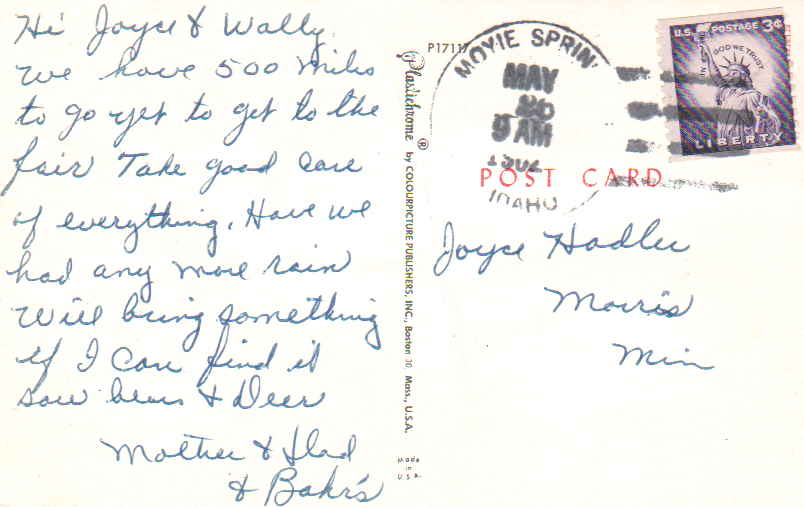 Hi Joyce & Wally
We have 500 miles
to go yet to get to the
fair Take good care
of everything. Have we
had any more rain
Will bring something
if I can find it
saw bears & Deer
Mother & Dad
& Bahr's
P17117
Plastichrome ®
by COLOURPICTURE PUBLISHERS, INC., Boston 30 Mass., U.S.A.
Made
in
U.S.A.
MOYIE SPRIN
MAY
26
9 AM
IDAHO
U.S. POSTAGE 3¢
IN GOD WE TRUST
LIBERTY
POST CARD
Joyce Hadler
Morris
Min